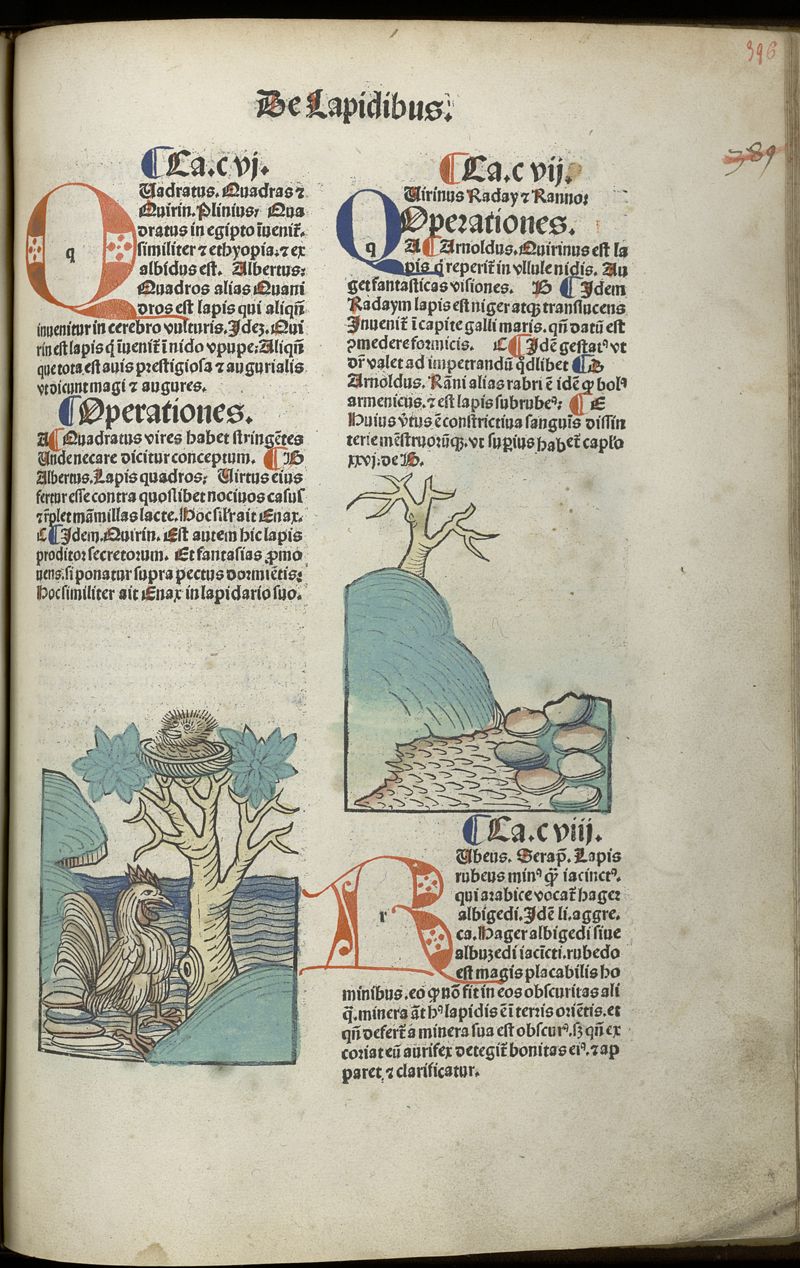 396
389
De Lapidibus.
Ca.c vj.
QUadratus. Quadras ⁊
Quirin. Plinius, Qua
dratus in egipto īuenit᷑.
similiter ⁊ ethyopia: ⁊ ex
albidus est. Albertus:
Quadros alias Quani
dros est lapis qui aliqñ
inuenitur in cerebro vulturis. Idez. Qui
rin est lapis q̇ īuenit᷑ ī nido vpupe: Aliqñ
que tota est auis prestigiosa ⁊ augurialis
vt dicunt magi ⁊ augures.
Operationes.
A Quadratus vires habet stringētes
Unde necare dicitur conceptum. B
Albertus. Lapis quadros: Uirtus eius
fertur esse contra quoslibet nociuos casus
⁊ r̄plet māmillas lacte. Hoc sil'r ait Enax.
C Idem. Quirin. Est autem hic lapis
proditor secretorum. Et fantasias ꝓmo
uens. si ponatur supra pectus dormiētis:
Hoc similiter ait Enax in lapidario suo.
Ca.c vij.
QUirinus Raday ⁊ Ranno:
Operationes.
A Arnoldus. Quirinus est la
pis q̇ reperit᷑ in vllule nidis. Au
get fantasticas visiones. B Idem
Radaym lapis est niger atqꝫ translucens
Inuenit᷑ ī capite galli maris. qñ datū est
ꝯmedere formicis. C Idē gestatꝰ vt
dr̄ valet ad impetrandū q̇dlibet D
Arnoldus. Rāni alias rabri ē idē ꝙ bolꝰ
armenicus. ⁊ est lapis subrubeꝰ: E
Huius v̄tus ē constrictiua sanguīs dissin
terie mēstruorūqꝫ. vt suꝑius habet᷑ cap̄lo
xxvj. de B.
Ca.c viij.
RUbeus. Serap̄. Lapis
rubeus minꝰ q̄ꝫ iacinctꝰ.
qui arabice vocat᷑ hager
albigedi. Idē li. aggre.
ca. Hager albigedi siue
albuzedi iacīcti. rubedo
est magis placabilis ho
minibus. eo ꝙ nō fit in eos obscuritas ali
q̄. minera āt hꝰ lapidis ē ī terris oriētis. et
qñ defert᷑ a minera sua est obscurꝰ. sꝫ qñ ex
coriat eū aurifex detegit᷑ bonitas eiꝰ. ⁊ ap
paret ⁊ clarificatur.